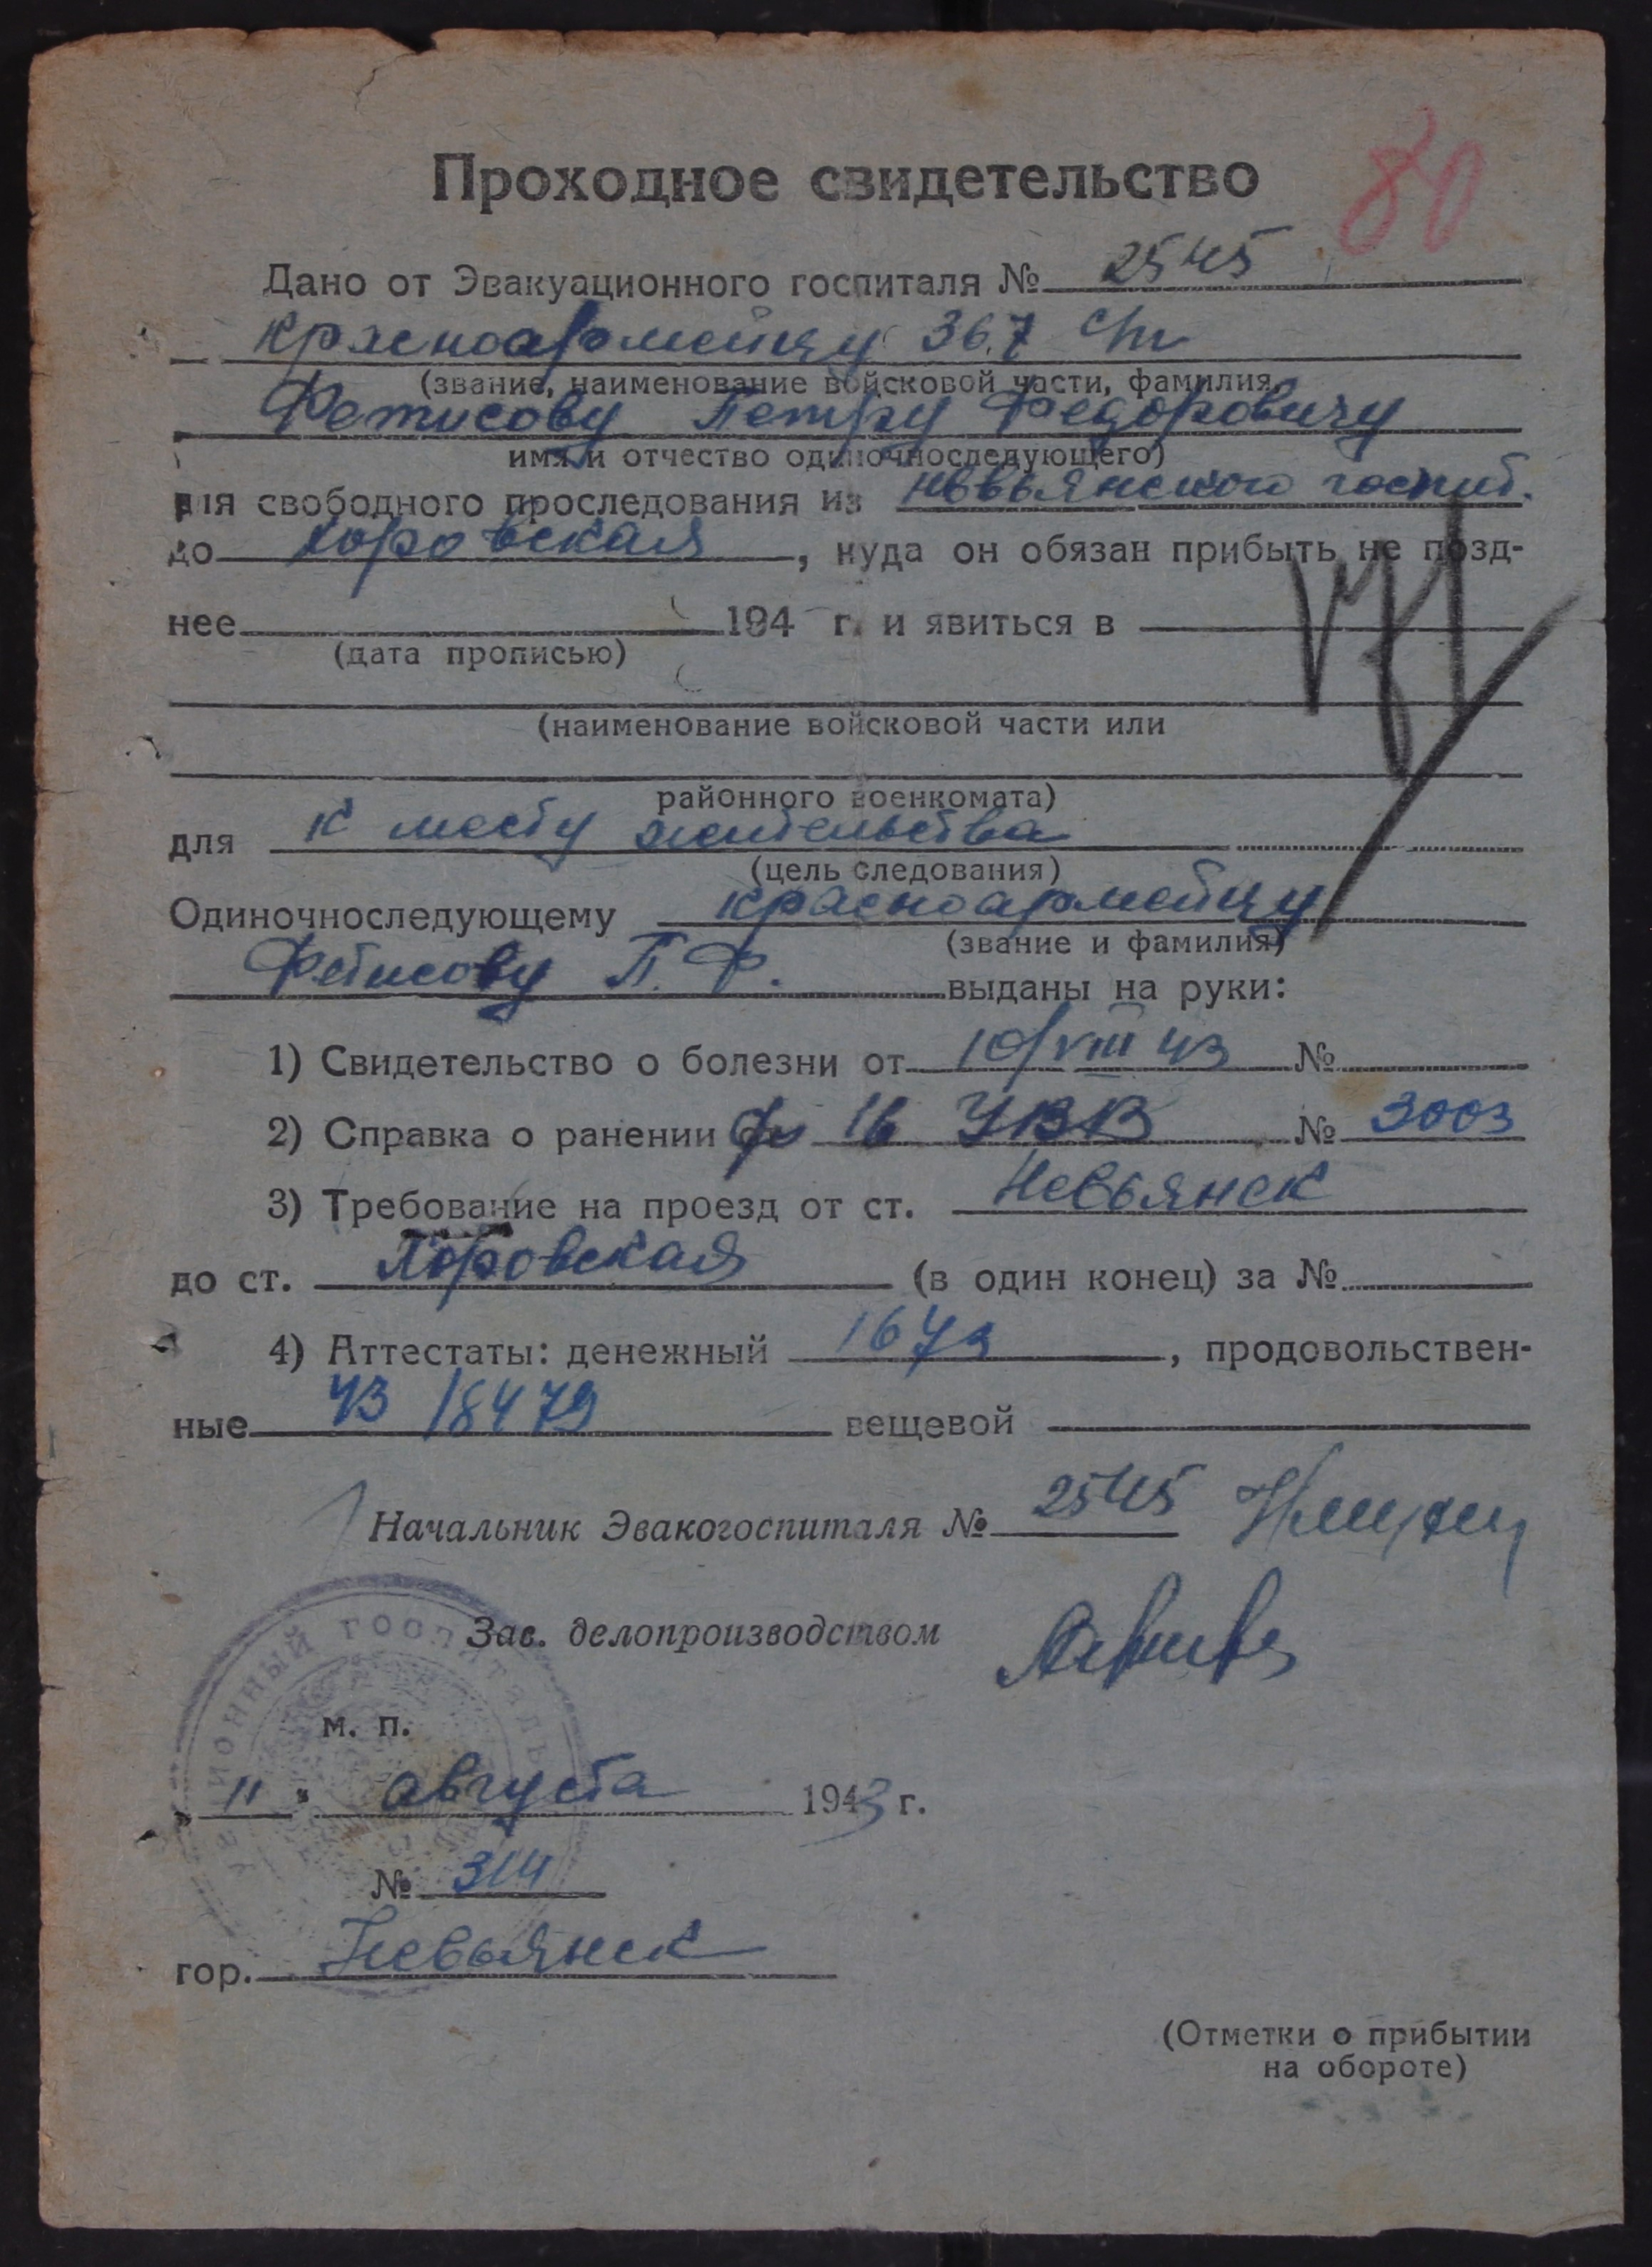 80
Проходное свидетельство
Дано от Эвакуационного госпиталя № 2545
красноармейцу 367 сп
(звание, наименование войсковой части, фамилия,
Фетисову Петру Федоровичу
имя и отчество одиночноследующего)
для свободного проследования из Невьянского госпит.
до Хоровская, куда он обязан прибыть не позд-
нее 194 г. и явиться в
(дата прописью)
(наименование войсковой части или
районного военкомата)
для к месту жительства
(цель следования)
Одиночноследующему красноармейцу
(звание и фамилия)
Фетисову П. Ф. выданы на руки:
1) Свидетельство о болезни от 10/VIII 43 №
2) Справка о ранении ф 16 УВВ № 3003
3) Требование на проезд от ст. Невьянск
до ст. Хоровская (в один конец) за №
4) Аттестаты: денежный 1673, продовольствен-
ные 43 18479 вещевой
Начальник Эвакогоспиталя № 2545
Зав. делопроизводством
ционный госпиталь
м. п.
„ 11 " августа 1943 г.
№ 314
гор. Невьянск
(Отметки о прибытии
на обороте)